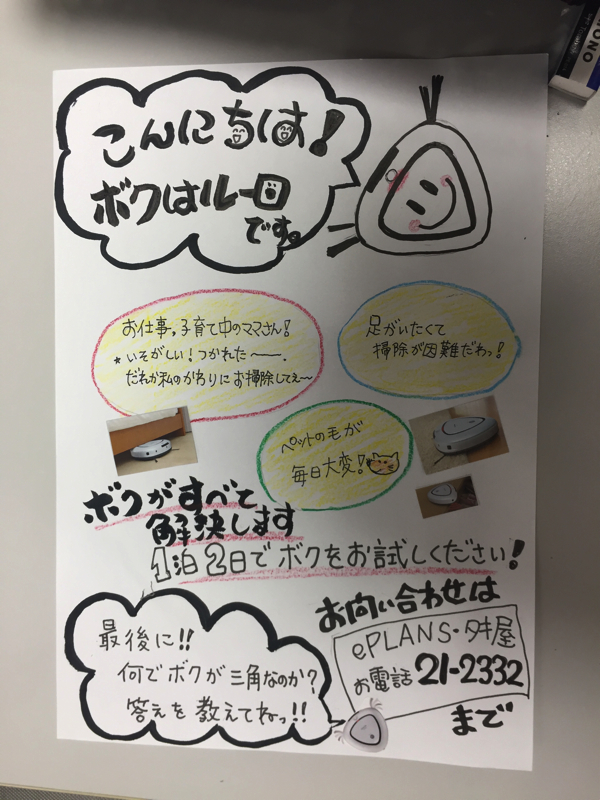 こんにちは!
ボクはルーロ
です。
お仕事、子育て中のママさん!
* いそがしい!つかれた〜〜.
だれか私のかわりにお掃除してぇ〜
足がいたくて
掃除が困難だわっ!
ペットの毛が
毎日大変!
ボクがすべて
解決します
1泊2日でボクをお試しください!
最後に!!
何でボクが三角なのか?
答えを教えてねっ!!
お問い合わせは
ePLANS・タキ屋
お電話 21-2332
まで
MONO